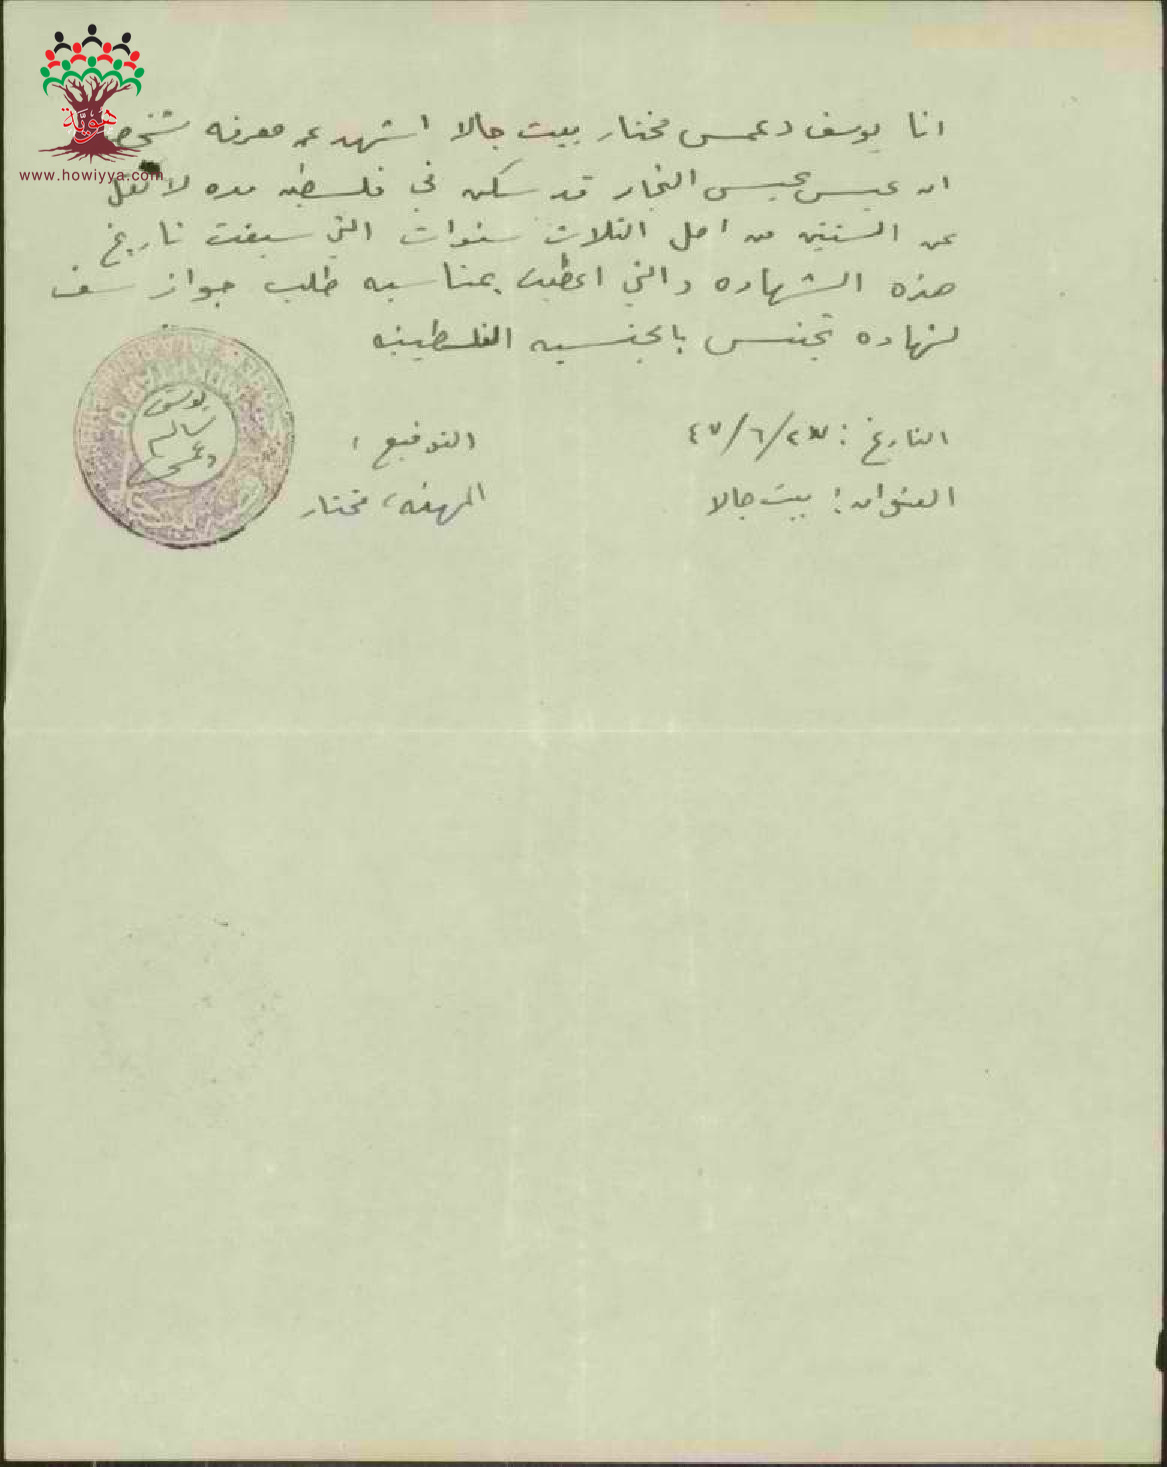 هوية
www.howiyya.com
انا يوسف دعمس مختار بيت جالا اشهد عن معرفه شخصيه
ان عيسى عيسى النجار قد سكن في فلسطين مده لا تقل
عن السنتين من اصل الثلاث سنوات التي سبقت تاريخ
هذه الشهاده والتي اعطيت بمناسبه طلب جواز سفر
لشهاده تجنس بالجنسيه الفلسطينيه
التاريخ : ٤٧/٦/٢٧ التوقيع :
العنوان : بيت جالا المهنه : مختار
MUKHTAR OF
يوسف
سالم
دعمس